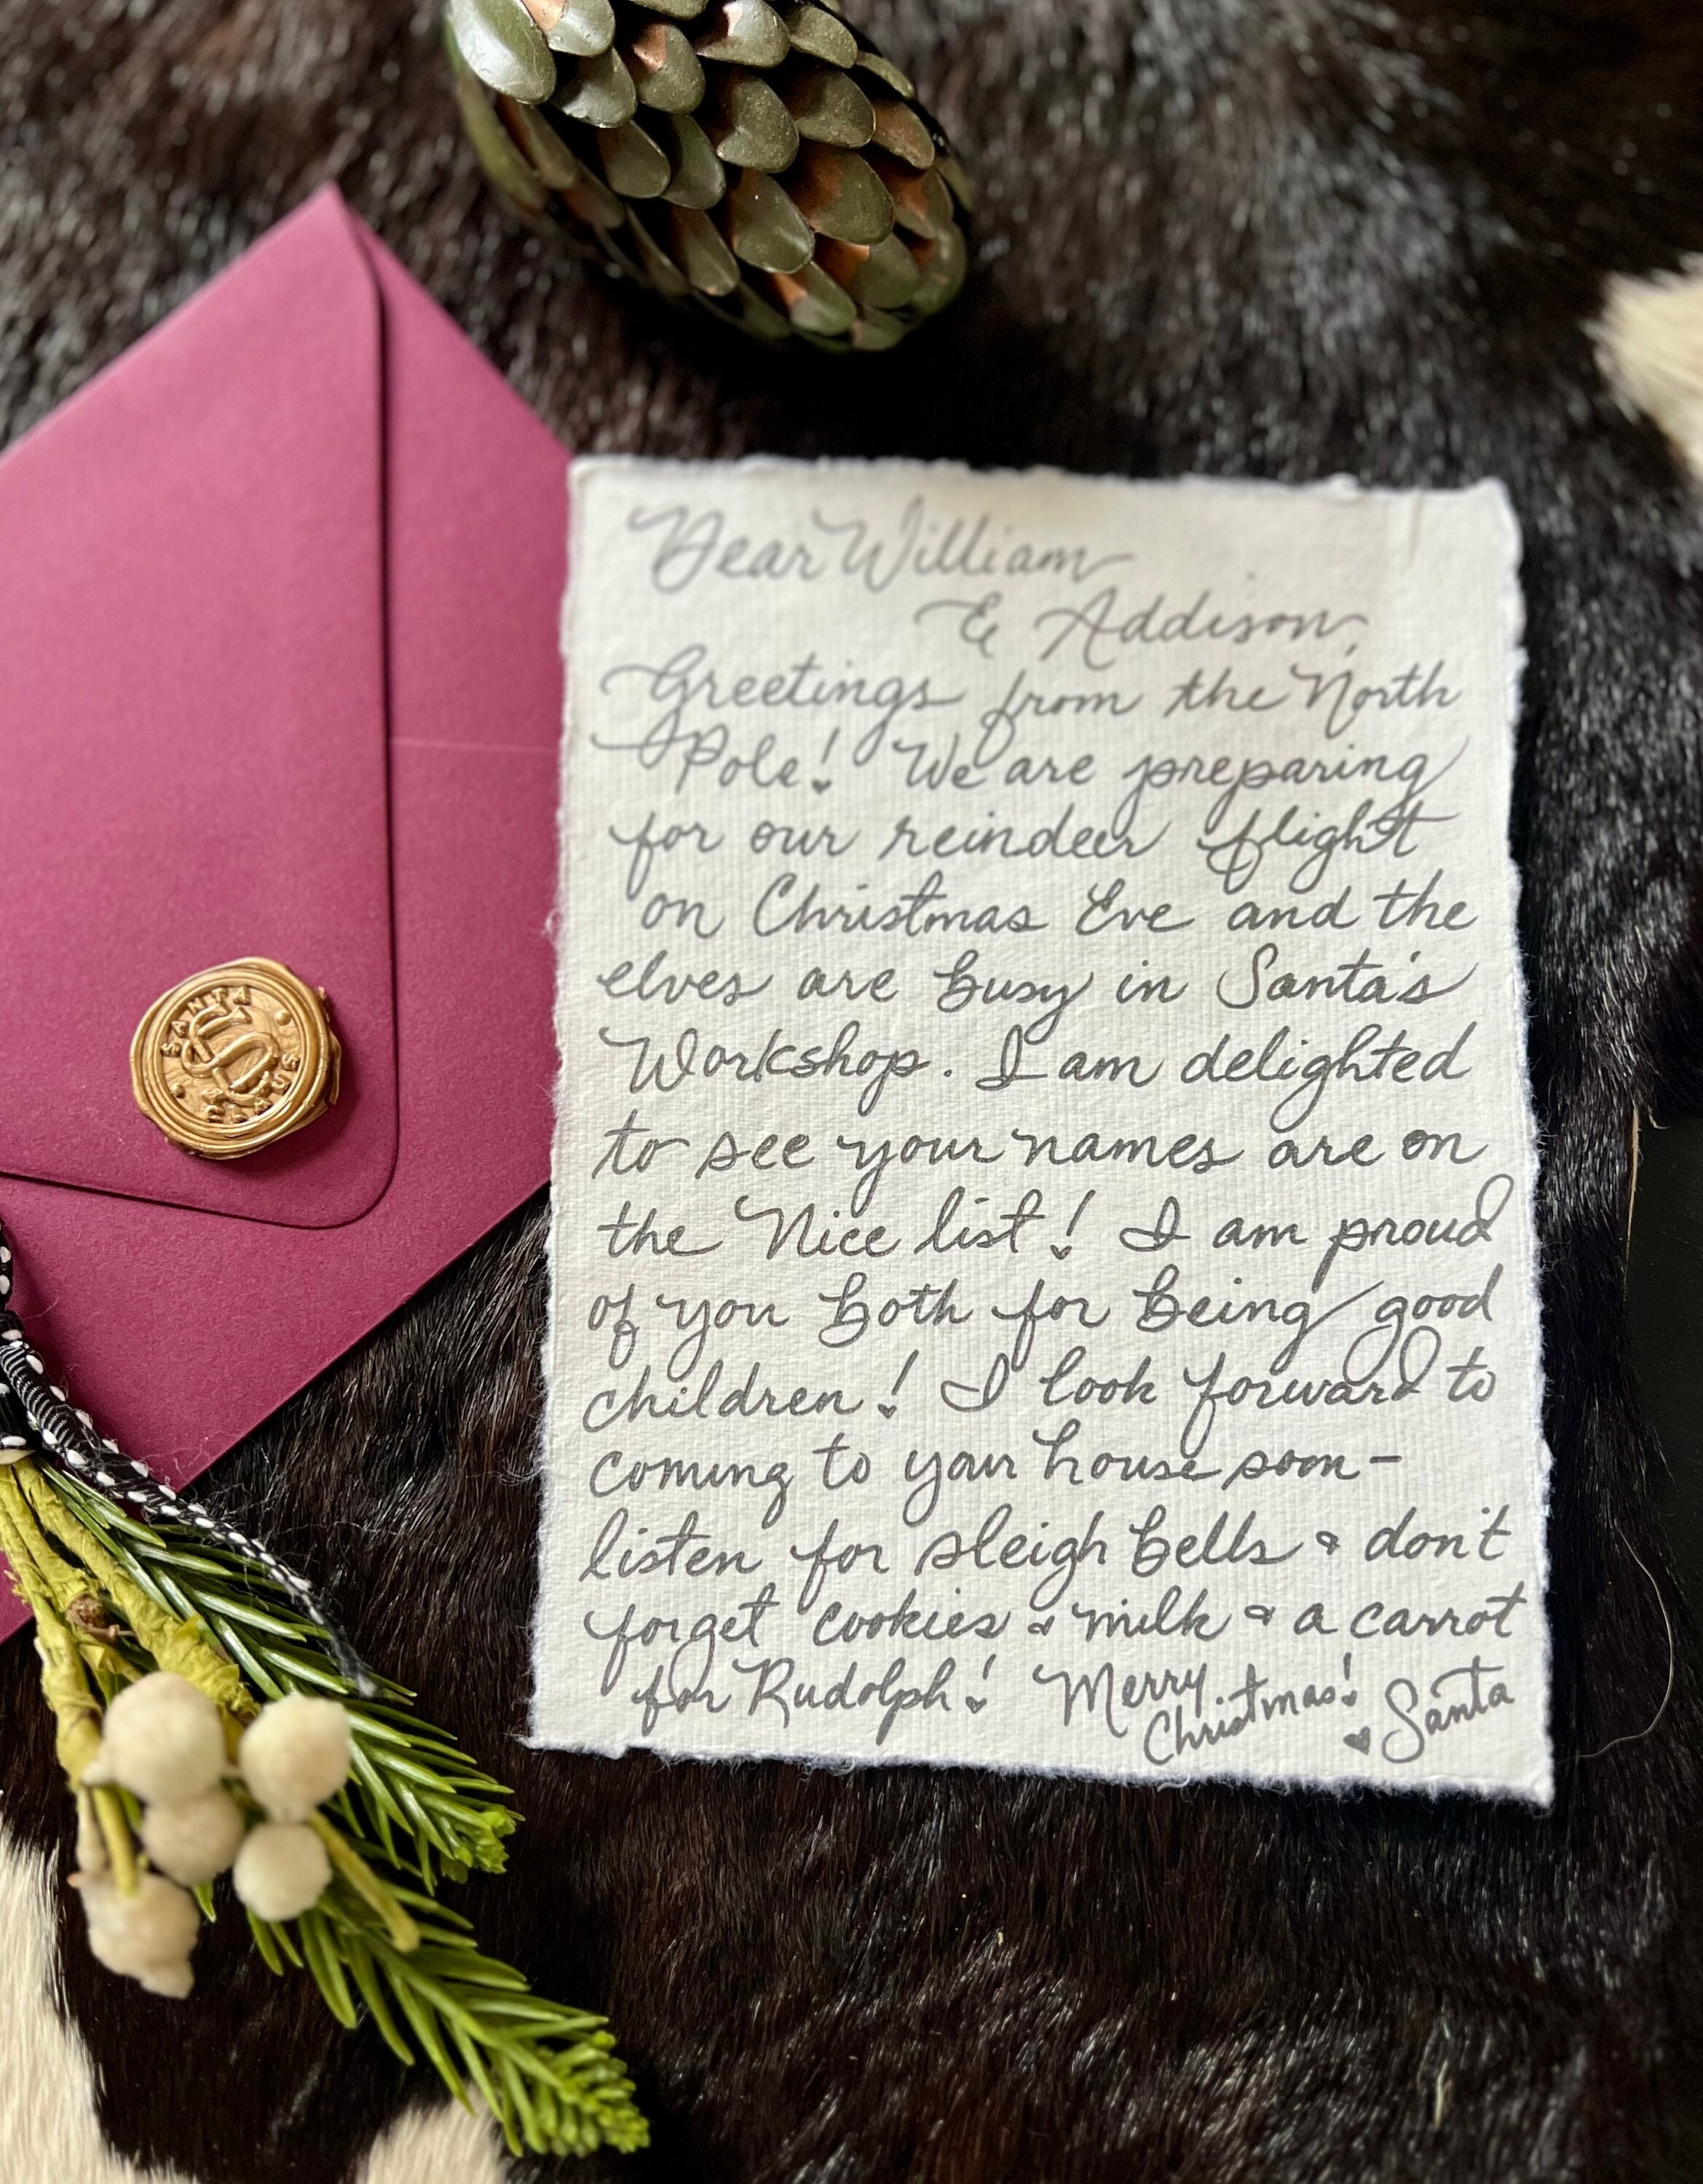 Dear William
& Addison,
Greetings from the North
Pole! We are preparing
for our reindeer flight
on Christmas Eve and the
elves are busy in Santa's
Workshop. I am delighted
to see your names are on
the Nice list! I am proud
of you both for being good
children! I look forward to
coming to your house soon-
listen for sleigh bells & don't
forget cookies & milk & a carrot
for Rudolph! Merry
Christmas! Santa
SANTA